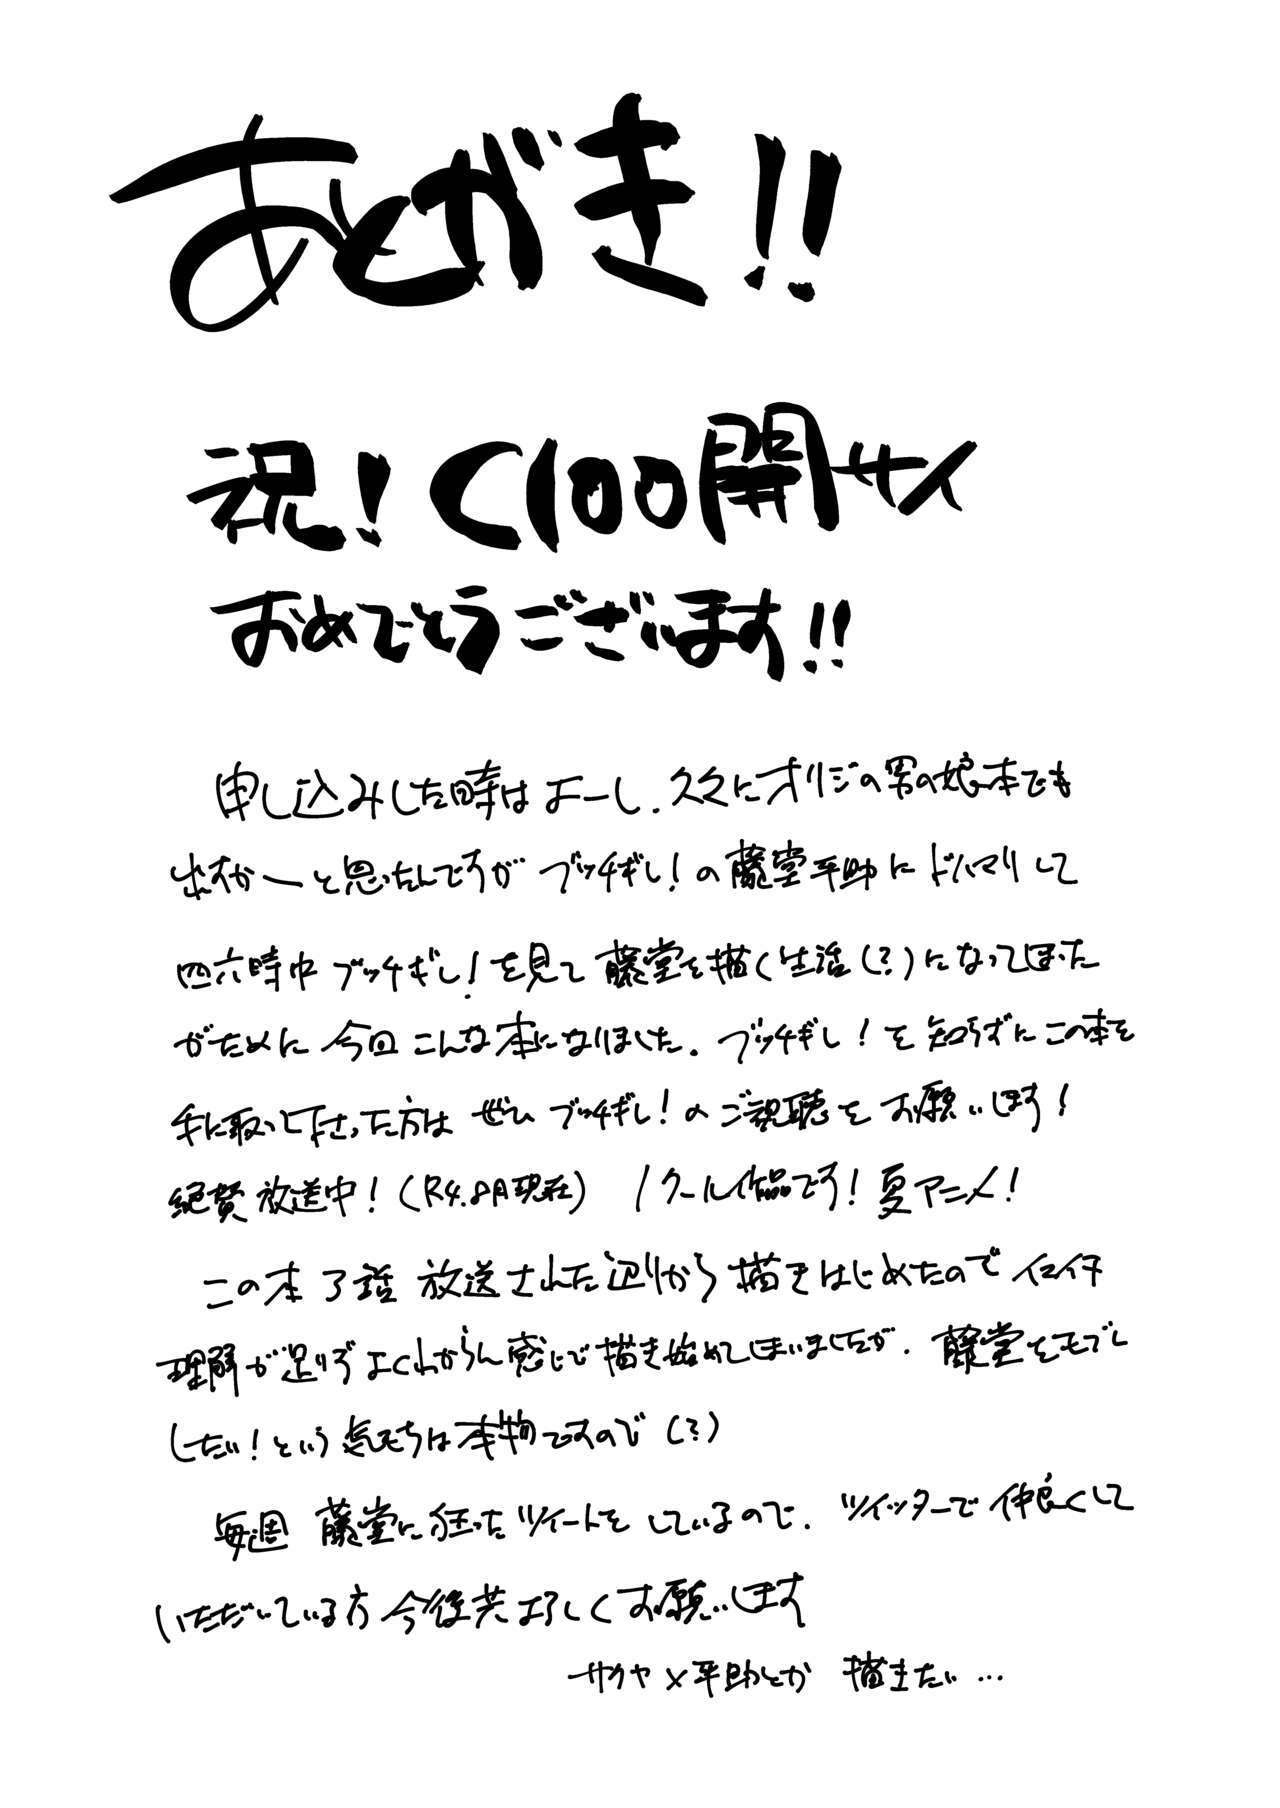 あとがき!!
祝!C100開サイ
おめでとうございます!!
申し込みした時はよーし、久々にオリジの男の娘本でも
出すかーと思ったんですが ブッチギレ!の藤堂平助にドハマりして
四六時中ブッチギレ!を見て藤堂を描く生活(?)になってしまった
がために今回こんな本になりました。ブッチギレ!を知らずにこの本を
手に取って下さった方は ぜひ ブッチギレ!のご視聴をお願いします!
絶賛放送中!(R4.8月現在) 1クール作品です!夏アニメ!
この本 3話 放送された辺りから描きはじめたのでイマイチ
理解が足りずよくわからん感じで描き始めてしまいましたが、藤堂をモブレ
したい!という気もちは本物ですので(?)
毎週 藤堂に狂ったツイートをしているので、ツイッターで仲良くして
いただいている方今後共よろしくお願いします
サクヤ×平助とか 描きたい…